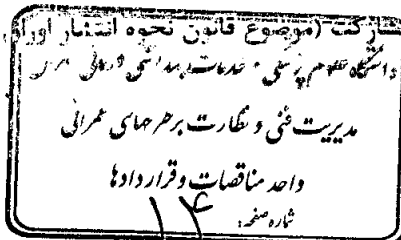 مشارکت (موضوع قانون نحوه انتشار اوراق
دانشگاه علوم پزشکی و خدمات بهداشتی درمانی
مدیریت فنی و نظارت بر طرحهای عمرانی
واحد مناقصات و قراردادها
شماره صفحه: ۱۴